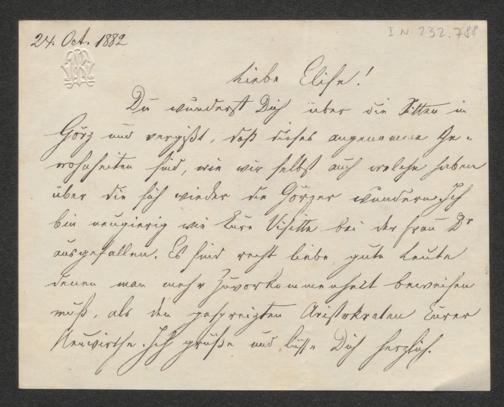 24. Oct. 1882
I N 232.788
Liebe Elise!
Du wunderst Dich über die Sitten in
Görz und vergißt, daß dieses angenomme Ge-
wohnheiten sind, wie wir selbst auch welche haben
über die sich wieder die Görzer wundern. Ich
bin neugierig wie Eure Visitte bei der Frau Dr
ausgefallen. Es sind recht liebe, gute Leute
denen man mehr Zuvorkommenheit beweisen
muß, als den gespreizten Aristokraten Eurer
Ich grüße und küsse Dich herzlich.